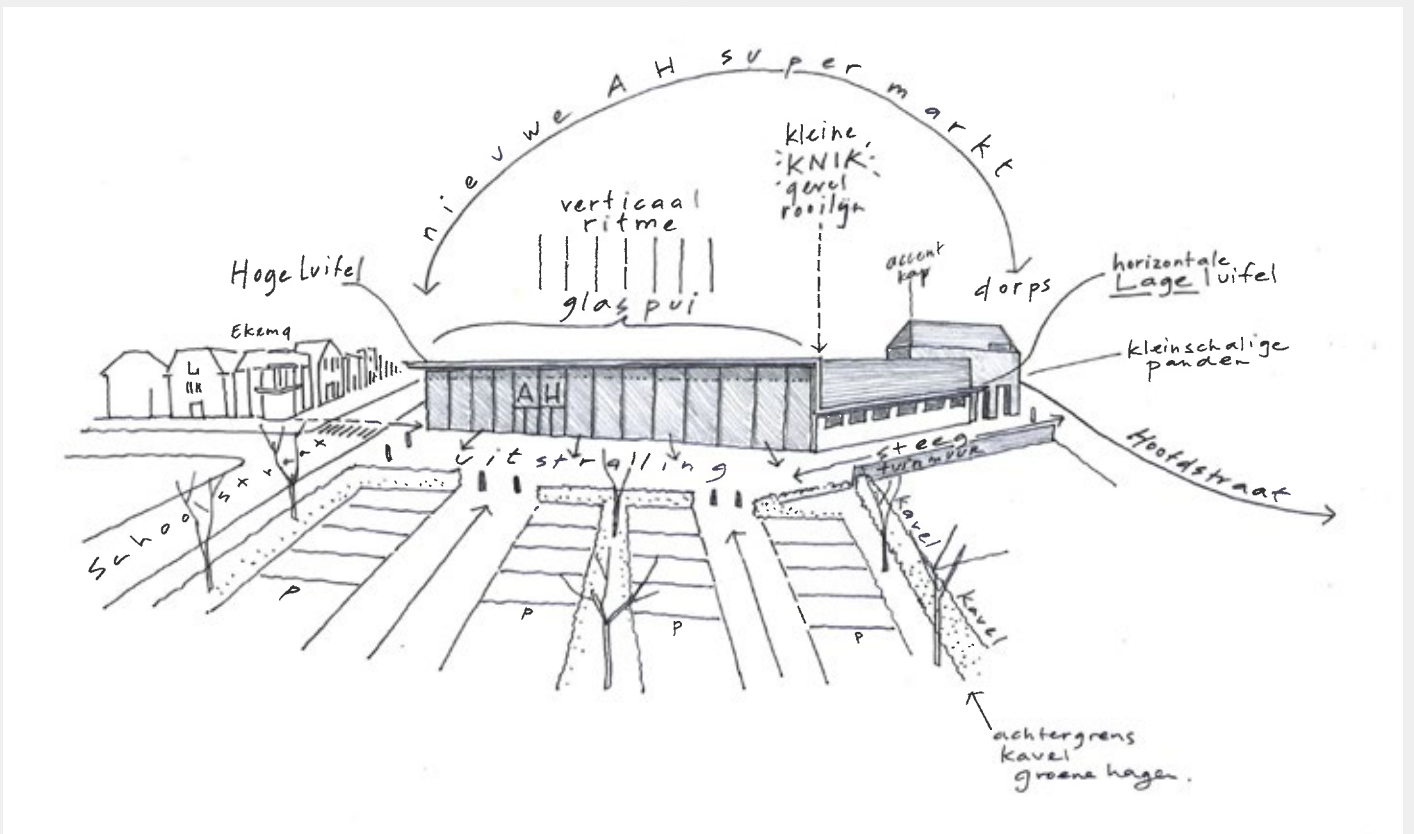 nieuwe AH supermarkt
kleine
KNIK
gevel
rooilijn
verticaal
ritme
glas pui
Hoge luifel
accent
kap
dorps
horizontale
Lage luifel
kleinschalige
panden
Ekema
AH
uitstralling
steeg
tuinmuur
Hoofdstraat
kavel
kavel
P
P
P
P
achtergrens
kavel
groene hagen.